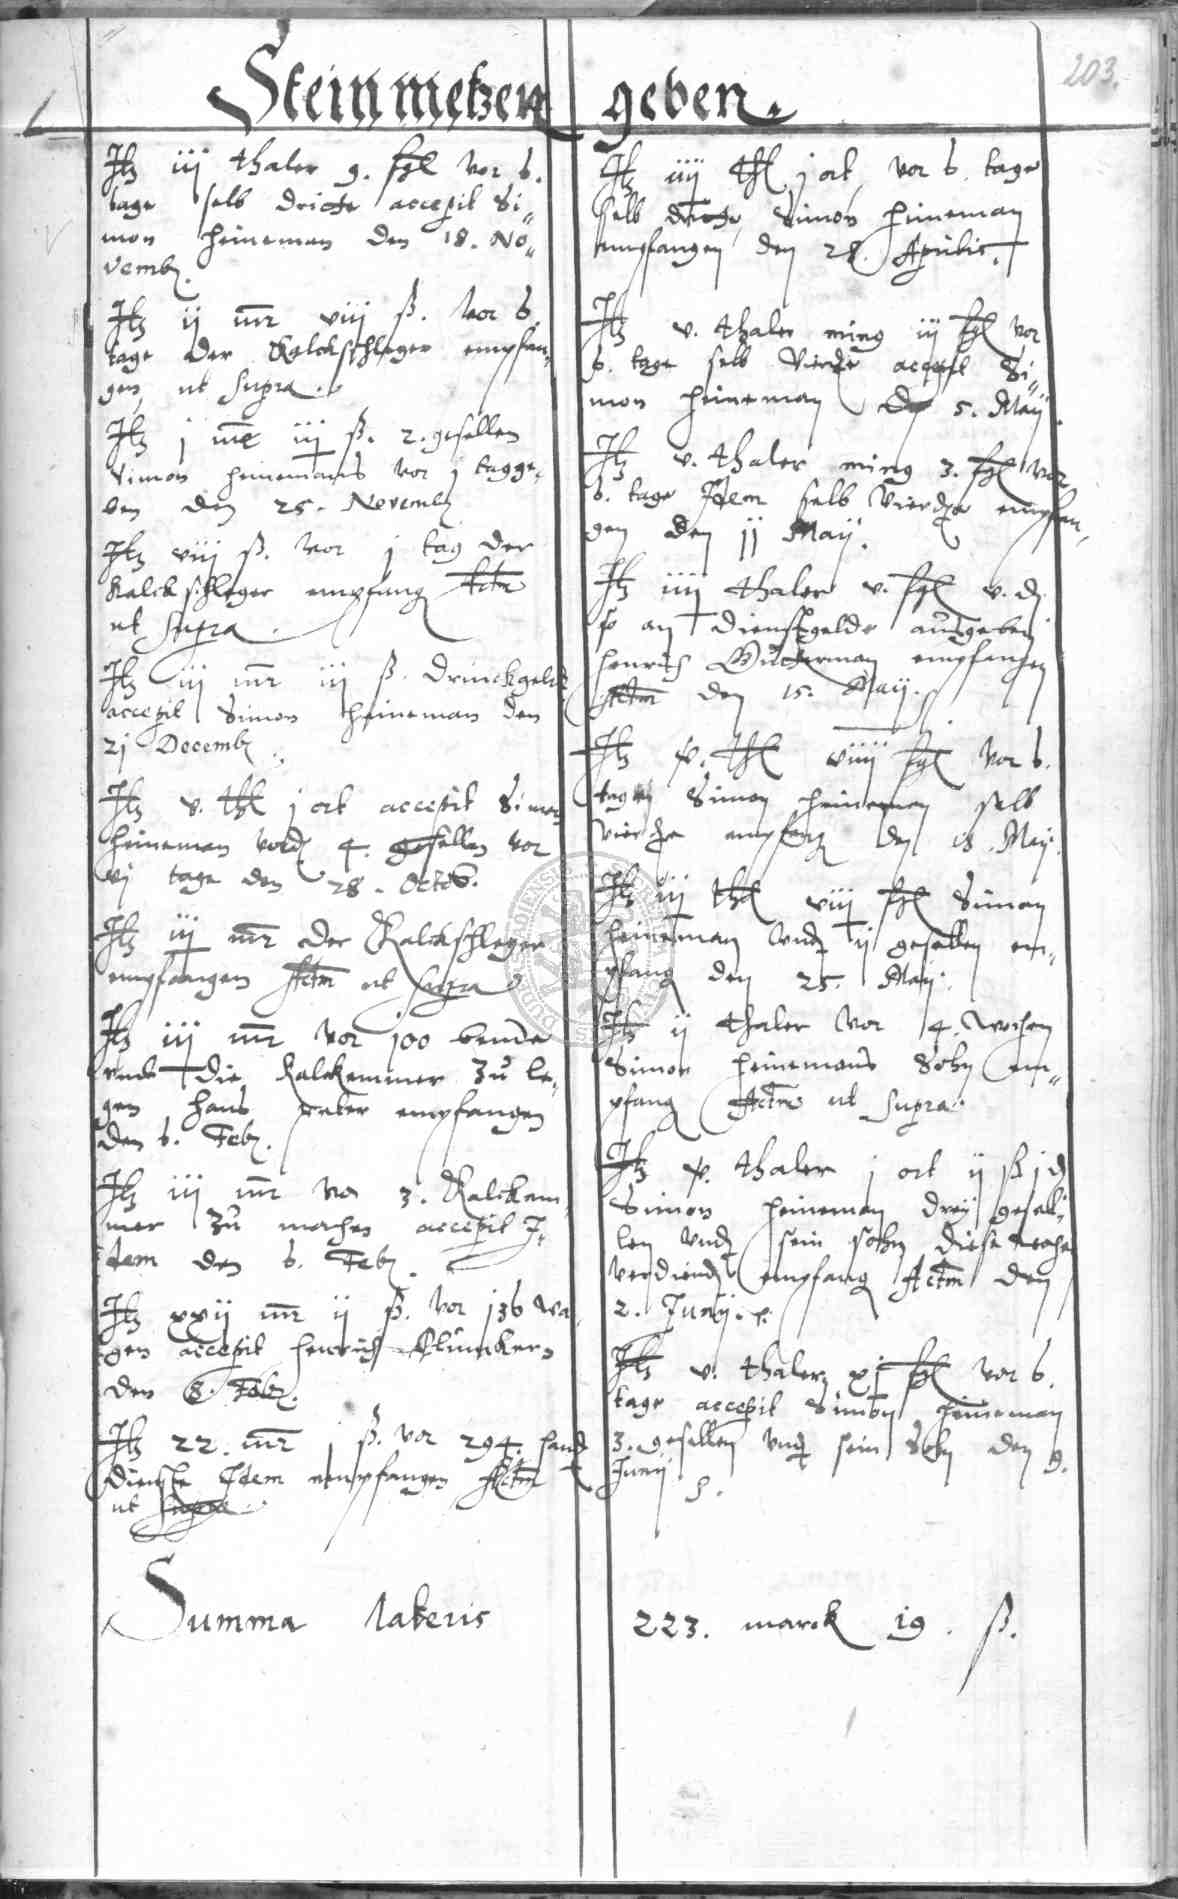 203.
Steinmetzen geben.
Itz iij thaler 9. fgl vor 6.
tage selb dritte accepit Si„
mon Heineman den 18. No„
vemb.
Itz ij mr viij ß. vor 6.
tage der Kalckschleger empfan„
gen ut supra.
Itz j mr iij ß. 2. gesellen
Simon Heinemans vor j tag ge„
ben den 25. Novemb
Itz viij ß. vor j tag der
Kalckschleger empfang
ut supra.
Itz iij mr iij ß. drinckgelt
accepit Simon Heineman den
21 Decemb
Itz v. thl j ort accepit Simon
Heineman 4. gesellen vor
vj tage den 28. Octob.
Itz iij mr der Kalckschleger
empfangen Actm ut supra
Itz iij mr vor 100
die Kalckammer zu le„
gen hans peter empfangen
den 6. Feb.
Itz iij mr vor 3. Kalckam„
mer zu machen accepit I„
dem den 6. Feb.
Itz xxij mr ij ß. vor 136 wa„
gen accepit Henrich
den 8. Feb.
Itz 22. mr j ß. vor 294. hand
dienste Idem empfangen Actm
ut supra
Itz iiij thl j ort vor 6. tage
selb dritte Simon Heineman
empfangen den 28. Aprilis.
Itz v. thaler ming iij fgl vor
6. tage selb vierde accepit Si„
mon Heineman den 5. Maij.
Itz v. thaler ming 3. fgl vor
6. tage Idem selb vierde empfan„
gen den 11 Maij.
Itz iiij thaler v. fgl v. d.
so an dienstgelde ausgeben
Henrich empfangen
Actm den 15. Maij.
Itz thl viiij fgl vor 6.
tagen Simon Heineman selb
vierde empfang den 18. Maij.
Itz iij thl viij fgl Simon
Heineman und ij gesellen em„
pfang den 25. Maij.
Itz ij thaler vor 4. wochen
Simon Heinemans Sohn em„
pfang Actm ut supra.
Itz thaler j ort ij ß j d
Simon Heineman drey gesel„
len und sein sohn diese woche
verdiend empfang Actm den
2. Junij.
Itz v. thaler xj fgl vor 6.
tage accepit Simon Heineman
3. gesellen und sein Sohn den 9.
Junij
Summa lateris 223. marck 19. ß.